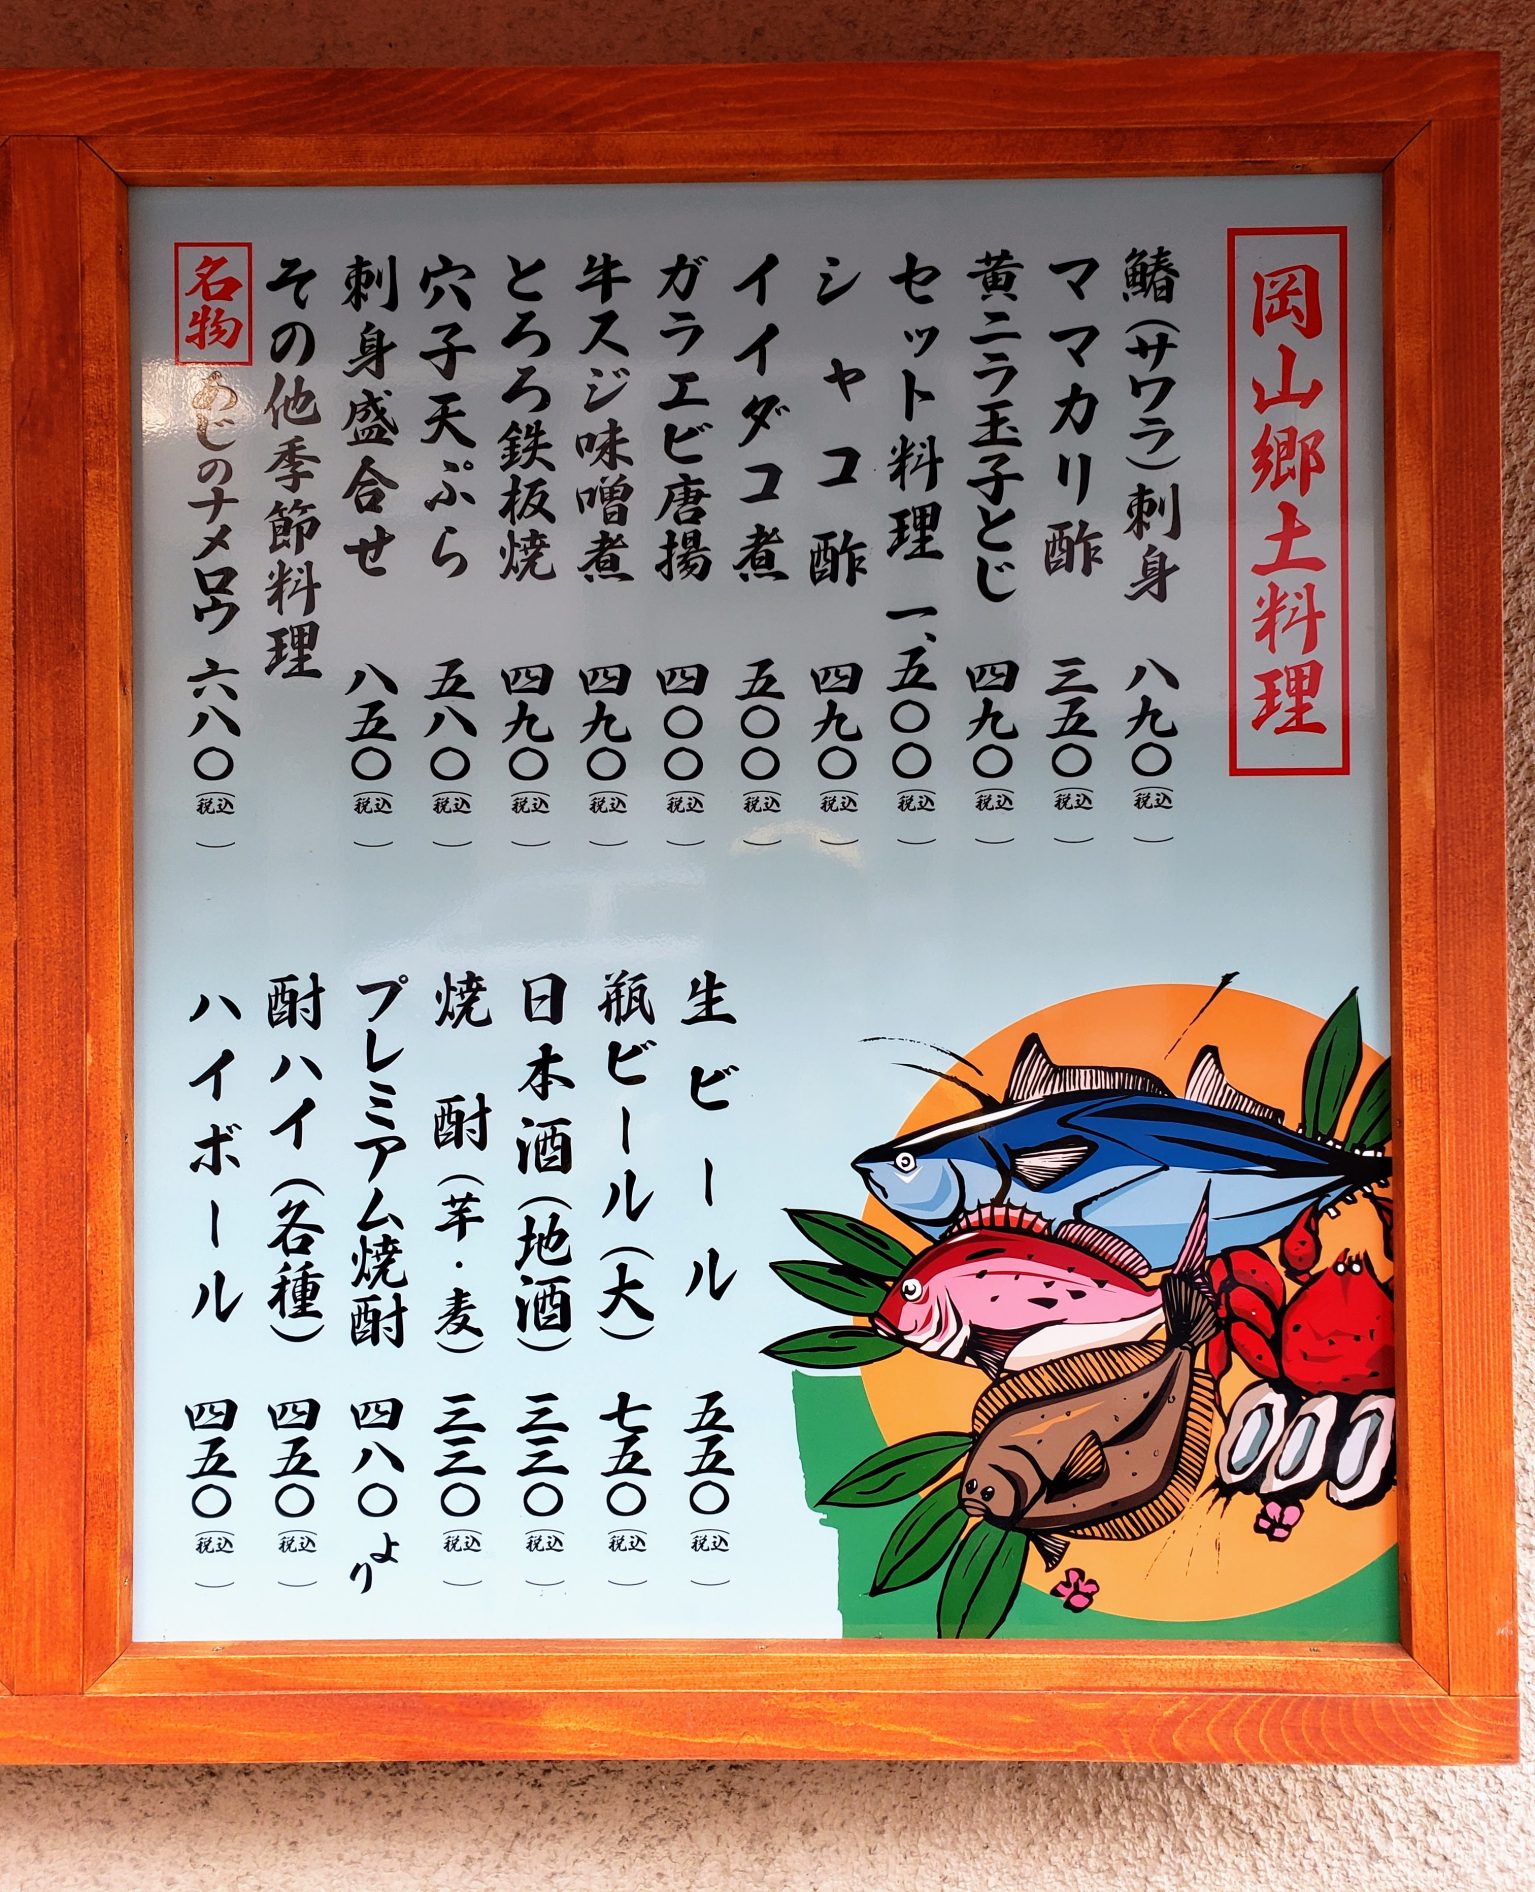 岡山郷土料理
鰆(サワラ)刺身 八九〇(税込)
ママカリ酢 三五〇(税込)
黄ニラ玉子とじ 四九〇(税込)
セット料理 一、五〇〇(税込)
シャコ酢 四九〇(税込)
イイダコ煮 五〇〇(税込)
ガラエビ唐揚 四〇〇(税込)
牛スジ味噌煮 四九〇(税込)
とろろ鉄板焼 四九〇(税込)
穴子天ぷら 五八〇(税込)
刺身盛合せ 八五〇(税込)
その他季節料理
名物 あじのナメロウ 六八〇(税込)
生ビール 五五〇(税込)
瓶ビール(大) 七五〇(税込)
日本酒(地酒) 三三〇(税込)
焼酎(芋・麦) 三三〇(税込)
プレミアム焼酎 四八〇より
酎ハイ(各種) 四五〇(税込)
ハイボール 四五〇(税込)